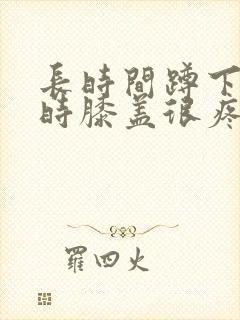 長時間蹲下
時膝盖很疼
羅四火